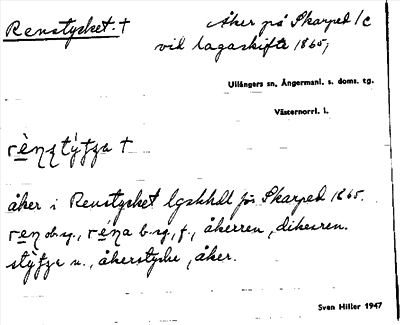 Renstycket. †
Åker på Skarped 1/c
vid lagaskifte 1865,
Ullångers sn, Ångermanl. s. doms. tg.
Västernorrl. l.
åker i Renstycket lgskhdl för Skarped 1865.
ren ob.sg., réna b.sg., f., åkerren, dikesren.
n., åkerstycke, åker.
Sven Hiller 1947